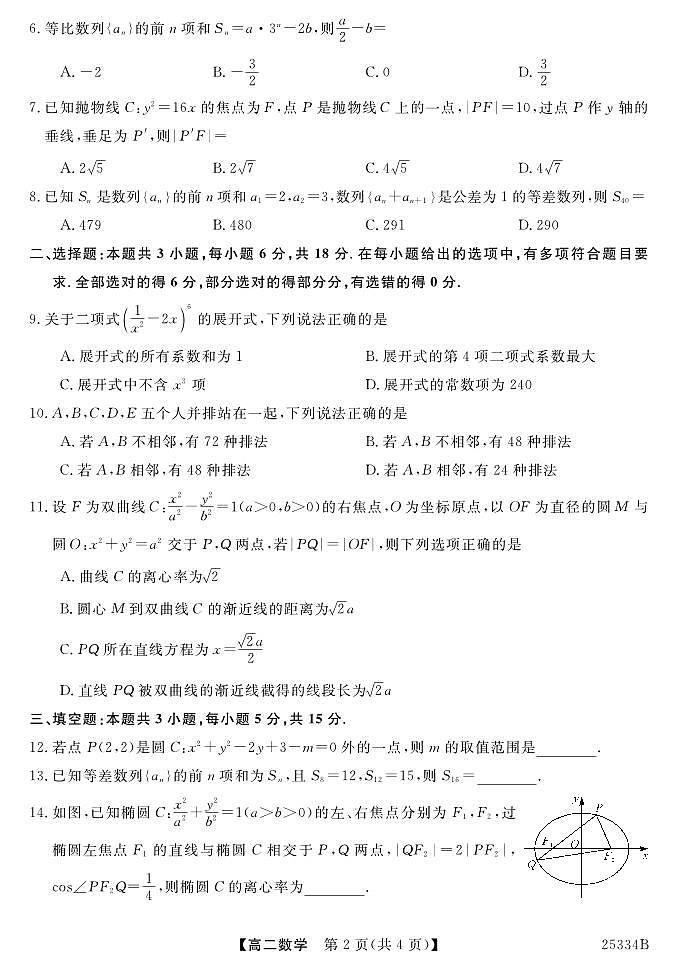 6. 等比数列{aₙ}的前 n 项和 Sₙ=a·3ⁿ-2b,则a/2-b=
A. -2 B. -3/2 C. 0 D. 3/2
7. 已知抛物线 C:y²=16x 的焦点为 F,点 P 是抛物线 C 上的一点,|PF|=10,过点 P 作 y 轴的
垂线,垂足为 P′,则|P′F|=
A. 2√5 B. 2√7 C. 4√5 D. 4√7
8. 已知 Sₙ 是数列{aₙ}的前 n 项和 a₁=2,a₂=3,数列{aₙ+aₙ₊₁}是公差为 1 的等差数列,则 S₄₀=
A. 479 B. 480 C. 291 D. 290
二、选择题:本题共 3 小题,每小题 6 分,共 18 分. 在每小题给出的选项中,有多项符合题目要
求. 全部选对的得 6 分,部分选对的得部分分,有选错的得 0 分.
9. 关于二项式(1/x²-2x)⁶ 的展开式,下列说法正确的是
A. 展开式的所有系数和为 1 B. 展开式的第 4 项二项式系数最大
C. 展开式中不含 x³ 项 D. 展开式的常数项为 240
10. A,B,C,D,E 五个人并排站在一起,下列说法正确的是
A. 若 A,B 不相邻,有 72 种排法 B. 若 A,B 不相邻,有 48 种排法
C. 若 A,B 相邻,有 48 种排法 D. 若 A,B 相邻,有 24 种排法
11. 设 F 为双曲线 C:x²/a²-y²/b²=1(a>0,b>0)的右焦点,O 为坐标原点,以 OF 为直径的圆 M 与
圆 O:x²+y²=a² 交于 P,Q 两点,若|PQ|=|OF|,则下列选项正确的是
A. 曲线 C 的离心率为√2
B. 圆心 M 到双曲线 C 的渐近线的距离为√2a
C. PQ 所在直线方程为 x=√2a/2
D. 直线 PQ 被双曲线的渐近线截得的线段长为√2a
三、填空题:本题共 3 小题,每小题 5 分,共 15 分.
12. 若点 P(2,2)是圆 C:x²+y²-2y+3-m=0 外的一点,则 m 的取值范围是________.
13. 已知等差数列{aₙ}的前 n 项和为 Sₙ,且 S₈=12,S₁₂=15,则 S₁₆=________.
14. 如图,已知椭圆 C:x²/a²+y²/b²=1(a>b>0)的左、右焦点分别为 F₁,F₂,过
椭圆左焦点 F₁ 的直线与椭圆 C 相交于 P,Q 两点,|QF₂|=2|PF₂|,
cos∠PF₂Q=1/4,则椭圆 C 的离心率为________.
y
P
F₁
O
F₂
x
Q
【高二数学 第 2 页(共 4 页)】
25334B